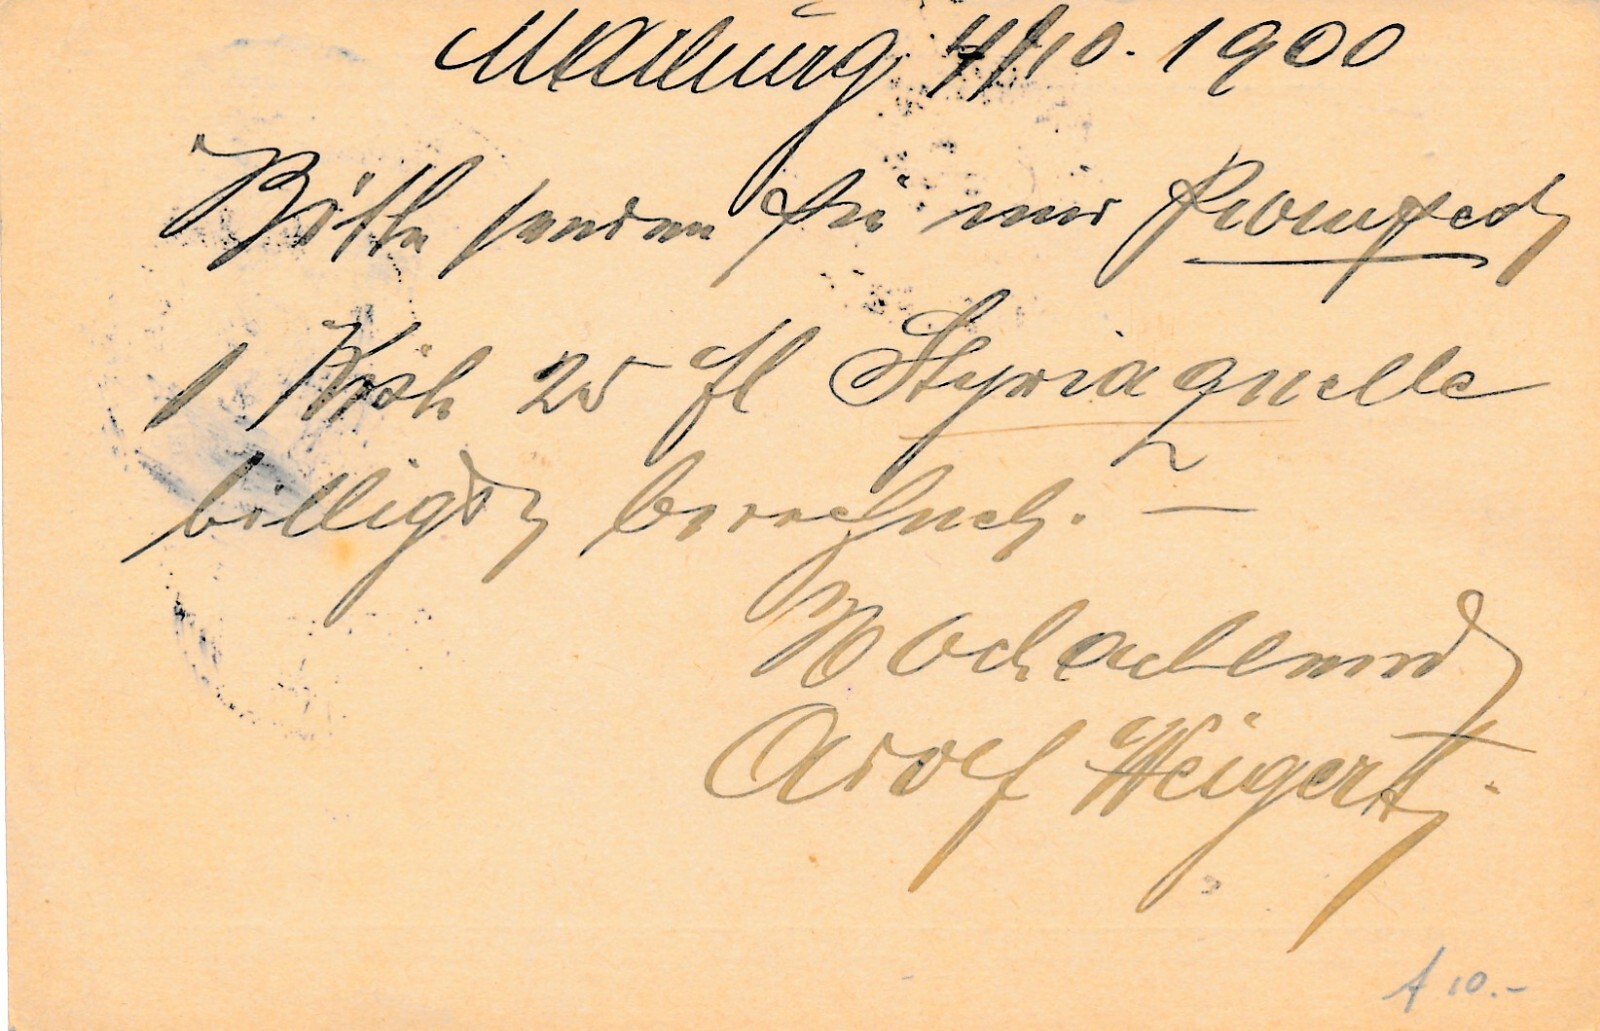 Marburg 4/10. 1900
Bitte senden Sie mir prompest
1 Kiste 25 fl Styriaquelle
billigst berechnet. —
Hochachtend
Adolf Weigert.
A 10.-